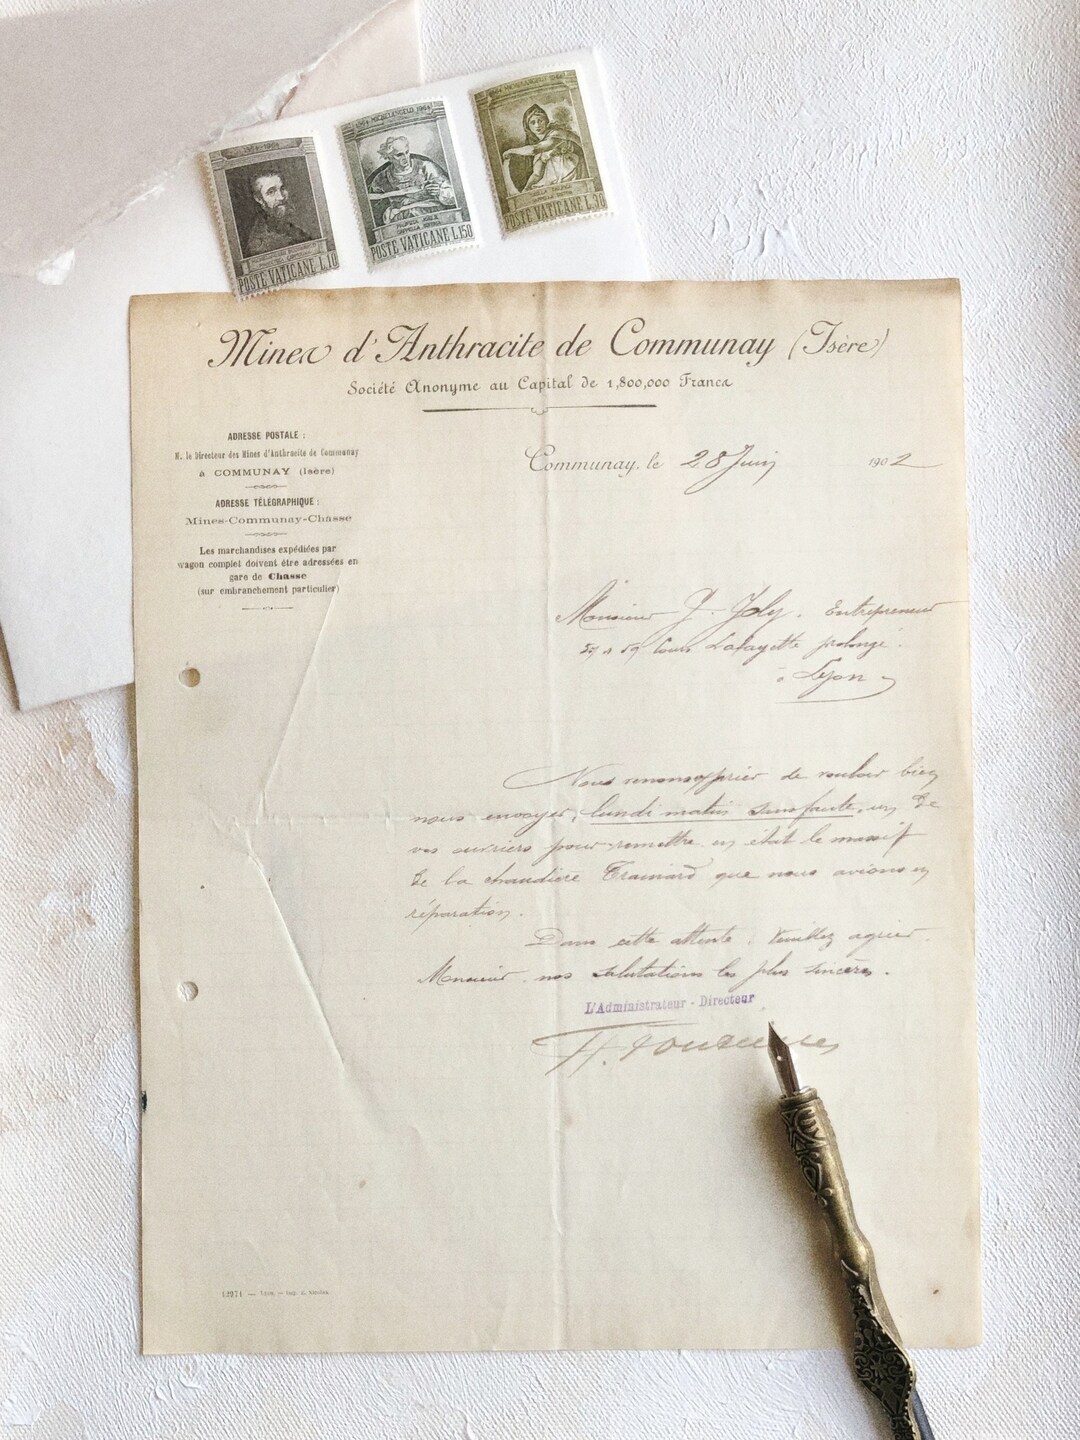 1564 - 1964
POSTE VATICANE L.10
1564 MICHELANGELO 1964
POSTE VATICANE L.150
1564 MICHELANGELO 1964
POSTE VATICANE L.30
Mines d'Anthracite de Communay (Isère)
Société Anonyme au Capital de 1,800,000 Francs
ADRESSE POSTALE :
M. le Directeur des Mines d'Anthracite de Communay
à COMMUNAY (Isère)
ADRESSE TÉLÉGRAPHIQUE :
Mines-Communay-Chasse
Les marchandises expédiées par
wagon complet doivent être adressées en
gare de Chasse
(sur embranchement particulier)
Communay, le 28 Juin 1902
Monsieur J. Joly. Entrepreneur
Cours Lafayette prolongé.
à Lyon
Nous venons prier de vouloir bien
nous envoyer, lundi matin sans faute, un de
vos ouvriers pour remettre en état le massif
de la chaudière que nous avions en
réparation.
Dans cette attente, Veuillez agréer,
Monsieur, nos salutations les plus sincères.
L'Administrateur - Directeur
12971 — Lyon. — Imp.